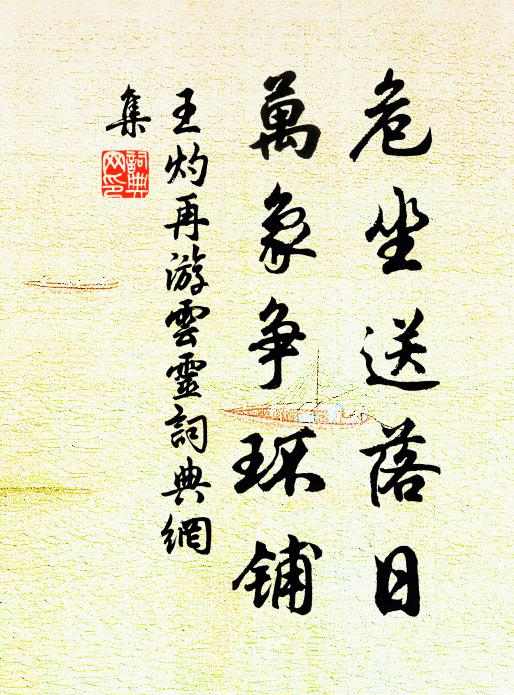 危坐送落日
萬象争环铺
王灼再游雲靈詞典網
集
詞典
网印